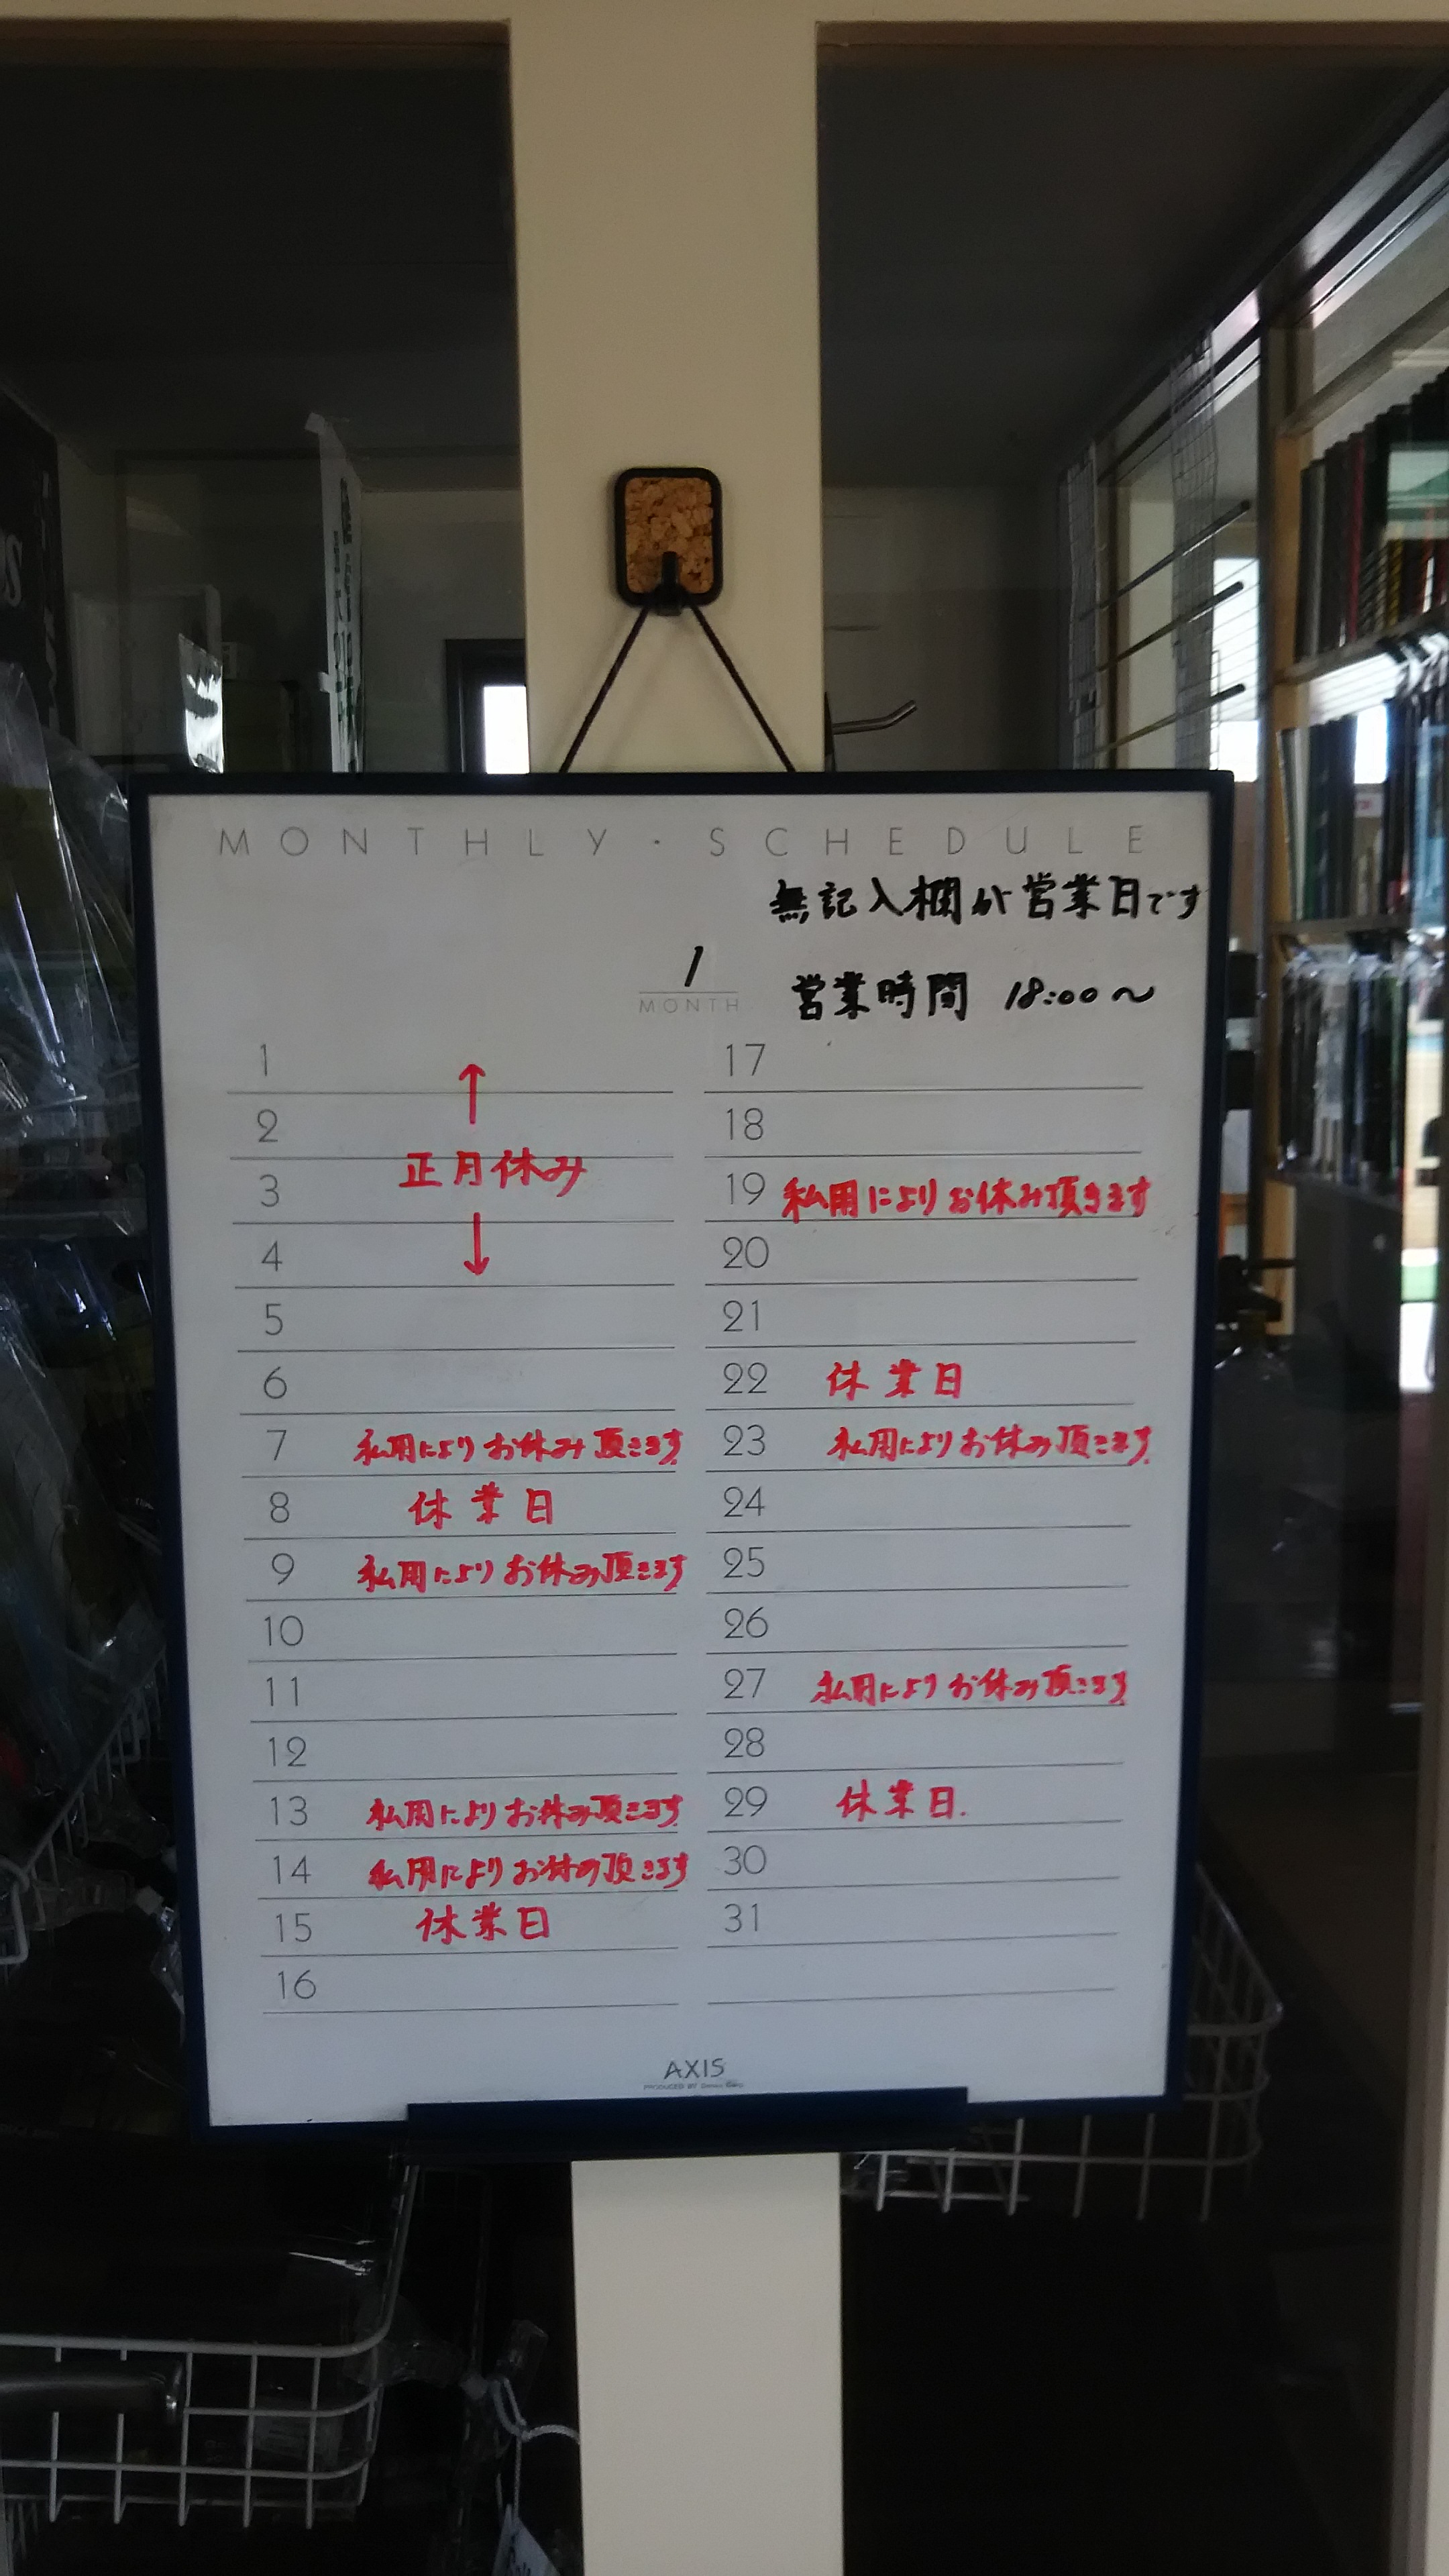 MONTHLY・SCHEDULE
無記入欄が営業日です
1
MONTH
営業時間 18:00〜
1 ↑
2
正月休み
3
4 ↓
5
6
7 私用によりお休み頂きます
8 休業日
9 私用によりお休み頂きます
10
11
12
13 私用によりお休み頂きます
14 私用によりお休み頂きます
15 休業日
16
17
18
19 私用によりお休み頂きます
20
21
22 休業日
23 私用によりお休み頂きます
24
25
26
27 私用によりお休み頂きます
28
29 休業日.
30
31
AXIS
PRODUCED BY